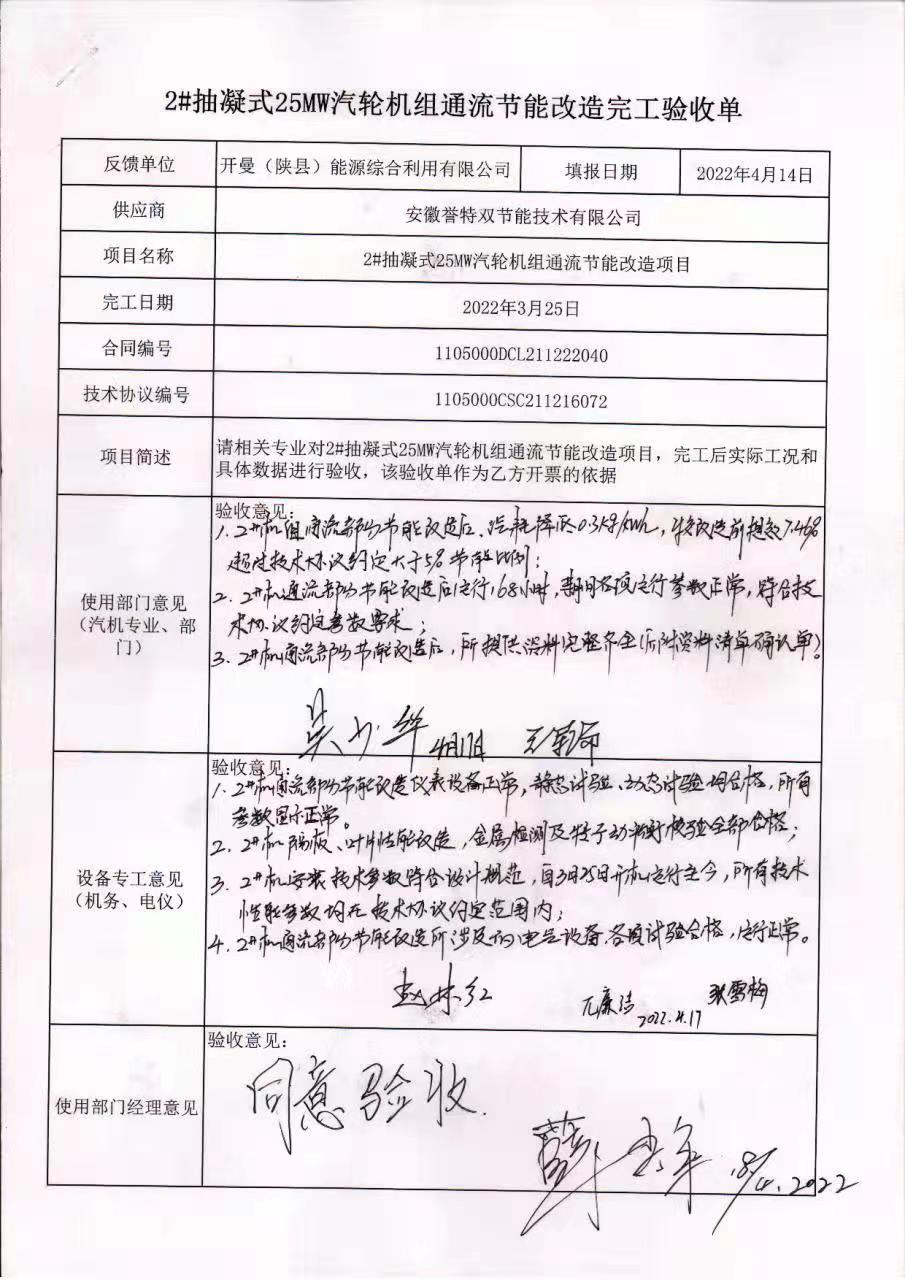 2#抽凝式25MW汽轮机组通流节能改造完工验收单
反馈单位 开曼（陕县）能源综合利用有限公司 填报日期 2022年4月14日
供应商 安徽誉特双节能技术有限公司
项目名称 2#抽凝式25MW汽轮机组通流节能改造项目
完工日期 2022年3月25日
合同编号 1105000DCL211222040
技术协议编号 1105000CSC211216072
项目简述
请相关专业对2#抽凝式25MW汽轮机组通流节能改造项目，完工后实际工况和
具体数据进行验收，该验收单作为乙方开票的依据
使用部门意见
（汽机专业、部
门）
验收意见：
1. 2#机组通流部分节能改造后，汽耗降低0.35kg/kWh，较改造前提效7.46%
超过技术协议约定大于5%节能比例；
2. 2#机通流部分节能改造后运行168小时，期间各项运行参数正常，符合技
术协议约定参数要求；
3. 2#机通流部分节能改造后，所提供资料完整齐全（附资料清单确认单）。
吴少华 4月17日
设备专工意见
（机务、电仪）
验收意见：
1. 2#机通流部分节能改造仪表设备正常，静态试验、动态试验均合格，所有
参数显示正常。
2. 2#机隔板、叶片性能改造，金属检测及转子动平衡校验全部合格；
3. 2#机安装技术参数符合设计规范，自3月25日开机运行至今，所有技术
性能参数均在技术协议约定范围内；
4. 2#机通流部分节能改造所涉及的电气设备，各项试验合格，运行正常。
赵林红 张雪梅
2022.4.17
使用部门经理意见
验收意见：
同意验收.
18/4.2022